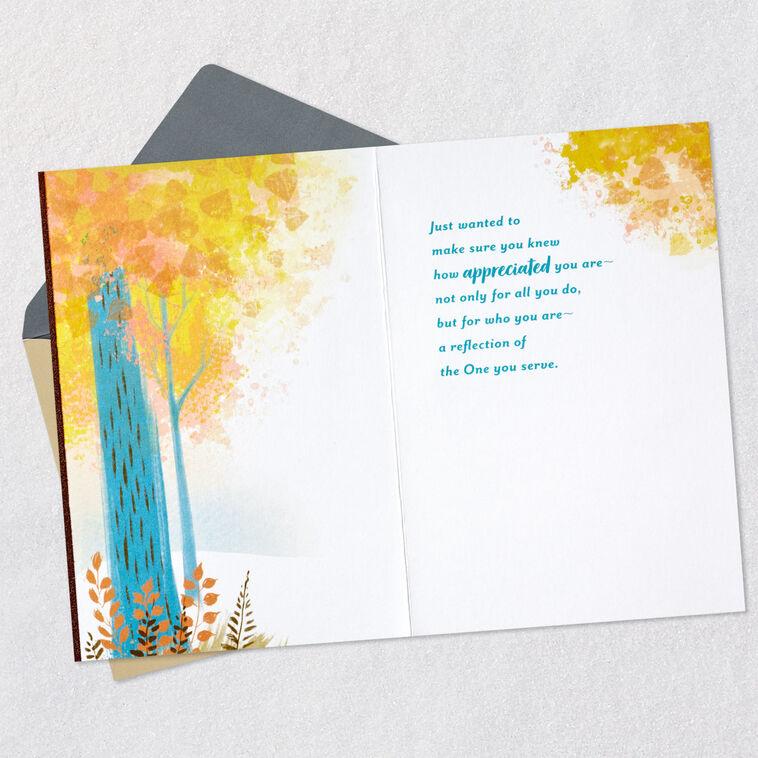 Just wanted to
make sure you knew
how appreciated you are~
not only for all you do,
but for who you are~
a reflection of
the One you serve.